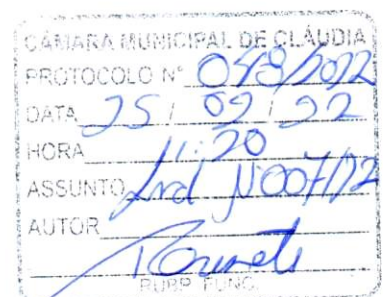 CÂMARA MUNICIPAL DE CLÁUDIA
PROTOCOLO Nº 048/2022
DATA 25 / 02 / 22
HORA 11:20
ASSUNTO Ind Nº007/22
AUTOR
RUBR. FUNC.